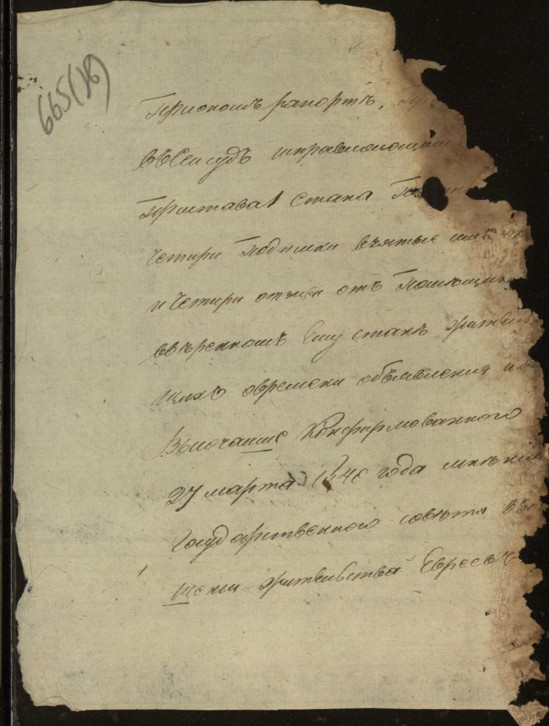 665(18)
При ономъ рапортѣ,
въ сей судъ исправляющий
Пристава 1 стана
четыри подписки взятые имъ
и четыри отзыва отъ помещик
ввѣренномъ ему станѣ
о времени объявления
Высочайше конфирмованного
27 марта 184 года мнѣния
Государственного совѣта
жительства Евреевъ